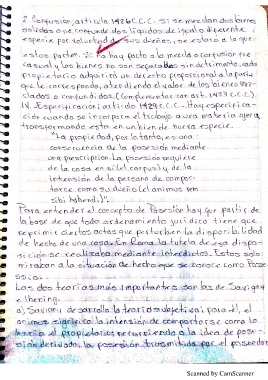 2. Confusión; artículo 1926 C.C.C. Si se mezclan dos bienes
solidos o se confunde dos líquidos de igual o diferente
especie por voluntad de sus dueños, se estará a lo que
estos pacten. Si no hay pacto o la mezla o confusión fue
casual y los bienes no son separables sin detrimento, cada
propietario adquirirá un derecho proporcional a la parte
que le corresponda, atendiendo al valor de los bienes mez-
clados o confundidos. (Complementar con art. C.C.C.)
IV. Especificación; artículo 1929 C.C.C. Hay especifica-
ción cuando se incorpora el trabajo a una materia ajena
transformando esta en un bien de nueva especie.
"La propiedad, por lo tanto, es una
consecuencia de la posesión mediante
una prescripción. La posesión requiere
de la cosa en sí (el corpus) y de la
intensión de la persona de compor-
tarce como su dueño (el animus rem
sibi habendi)".
Para entender el concepto de Posesión hay que partir de
la base de que todo ordenamiento jurídico tiene que
reprimir ciertos actos que perturben la disponibilidad
de hecho de una cosa. En Roma la tutela de esa dispo-
sición se realizaba mediante interdictos. Estos solo
miraban a la situación de hecho que se conoce como Pose
sión.
Las dos teorías más importantes son las de: Savigny
e Ihering.
a) Savigny desarrolla la teoría subjetiva; para él, el
animus significa la intensión de comportarse como lo
haría el propietario, recurriendo a la idea de pose-
sión derivada, la posesión trasmitida por el poseedor
Scanned by CamScanner